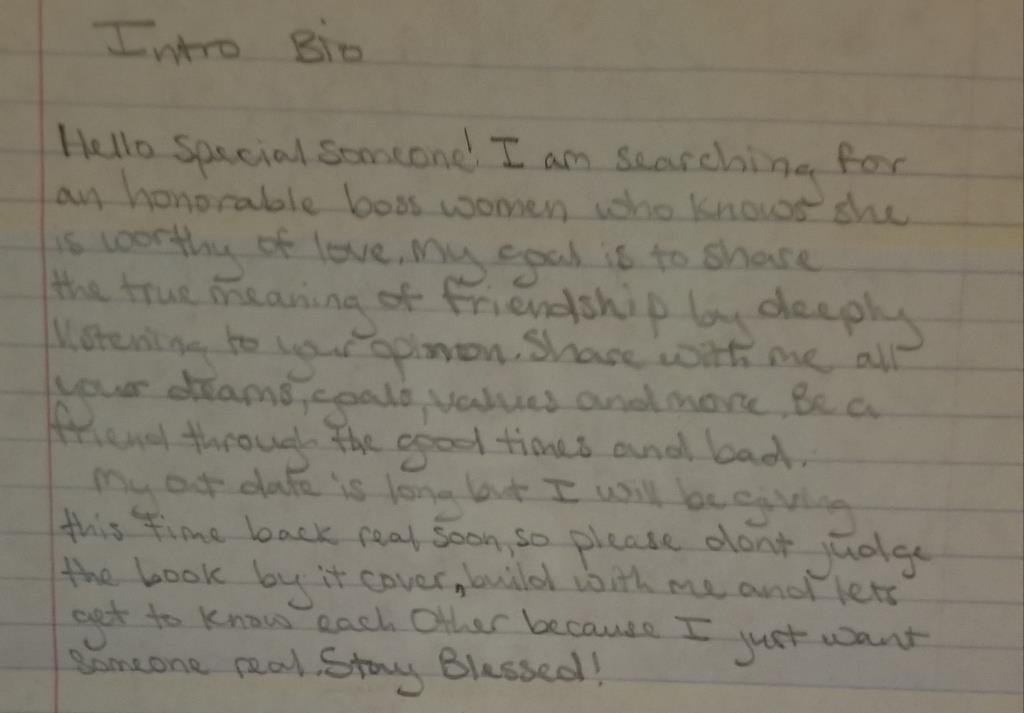 Intro Bio
Hello special someone! I am searching for
an honorable boss women who knows she
is worthy of love. My goal is to share
the true meaning of friendship by deeply
listening to your opinion. Share with me all
your dreams, goals, values and more. Be a
friend through the good times and bad.
My out date is long but I will be giving
this time back real soon, so please dont judge
the book by it cover, build with me and lets
get to know each Other because I just want
someone real. Stay Blessed!